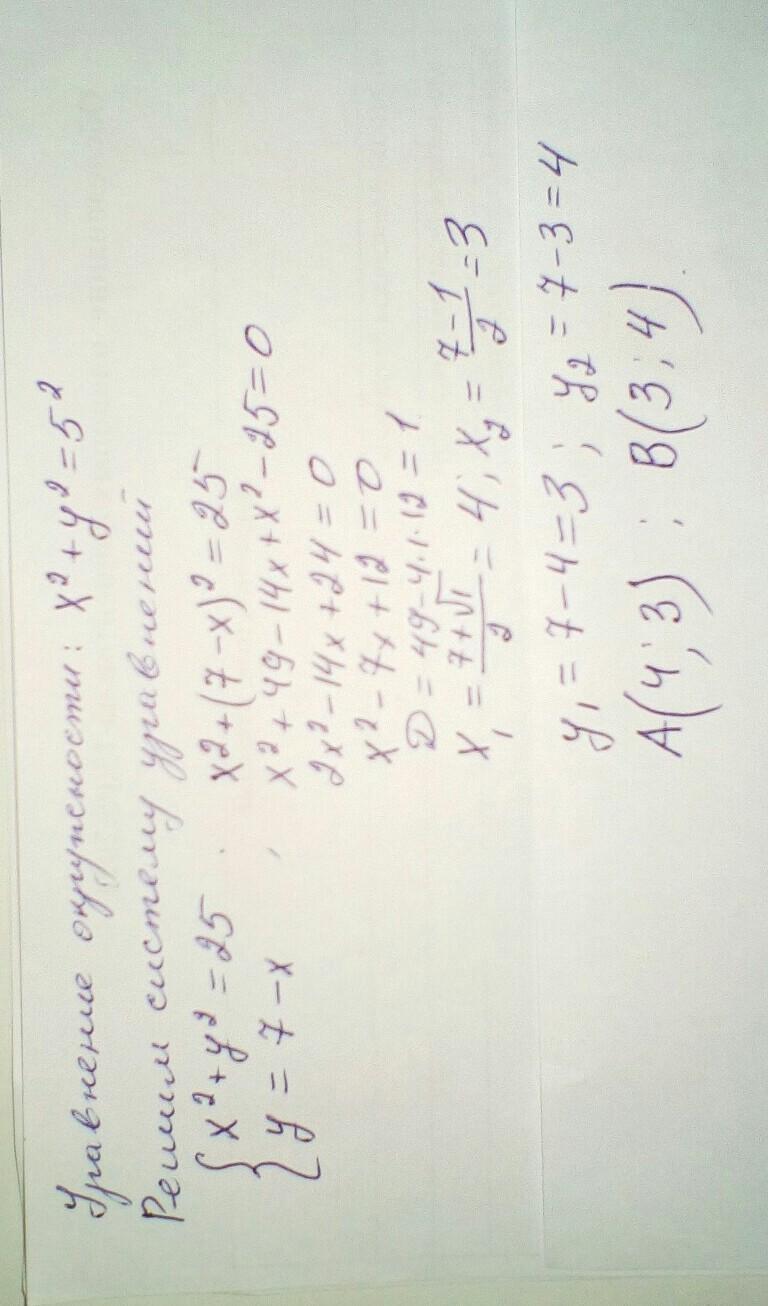 Уравнение окружности: x² + y² = 5²
Решим систему уравнений
{ x² + y² = 25
y = 7 - x ,
x² + (7 - x)² = 25
x² + 49 - 14x + x² - 25 = 0
2x² - 14x + 24 = 0
x² - 7x + 12 = 0
D = 49 - 4·1·12 = 1
x₁ = (7 + √1)/2 = 4; x₂ = (7 - 1)/2 = 3
y₁ = 7 - 4 = 3 ; y₂ = 7 - 3 = 4
A(4; 3) ; B(3; 4).